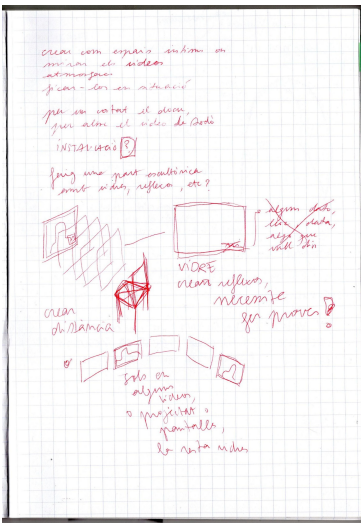 crear com espais íntims on
mirar els videos
atmosfera
ficar-los en situació
per un costat el docu,
per altre el video de Dodó
INSTAL·LACIÓ ?
faig una part escultòrica
amb vidres, reflexos, etc?
algun dato,
clau data,
algo que
vull dir
VIDRE
creava reflexos,
necessite
fer proves!
crear
distància
sols en
alguns
videos,
o projectat o
pantalles,
la resta vidres